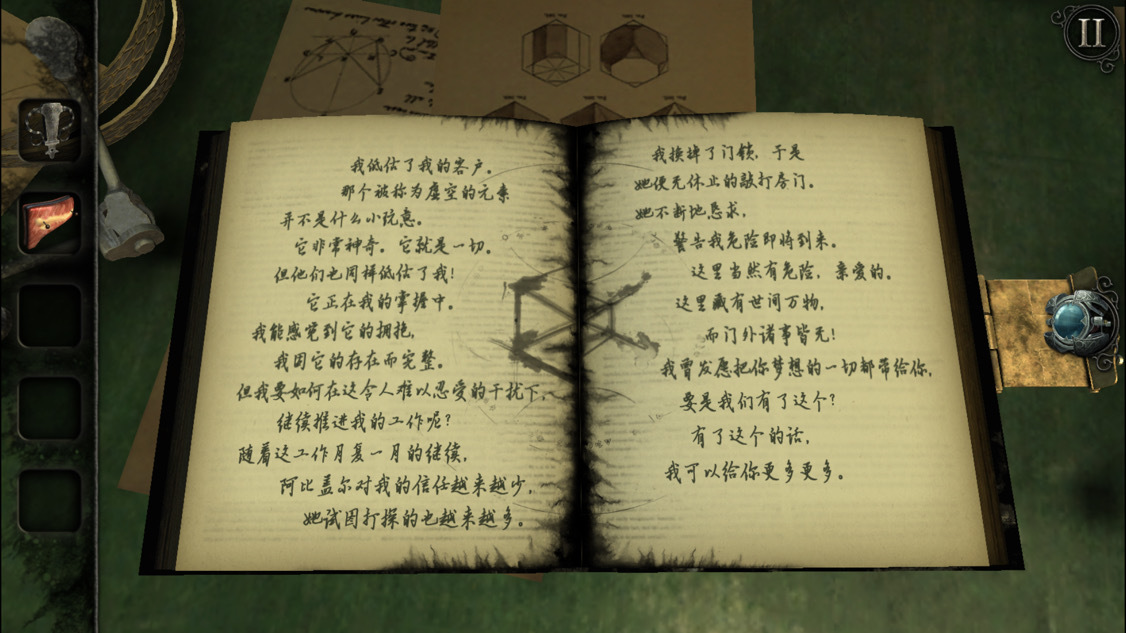 我低估了我的客户。
那个被称为虚空的元素
并不是什么小玩意。
它非常神奇。它就是一切。
但他们也同样低估了我！
它正在我的掌握中。
我能感觉到它的拥抱，
我因它的存在而完整。
但我要如何在这令人难以忍受的干扰下，
继续推进我的工作呢？
随着这工作月复一月的继续，
阿比盖尔对我的信任越来越少，
她试图打探的也越来越多。
我换掉了门锁，于是
她便无休止的敲打房门。
她不断地恳求，
警告我危险即将到来。
这里当然有危险，亲爱的。
这里藏有世间万物，
而门外诸事皆无！
我曾发愿把你梦想的一切都带给你，
要是我们有了这个？
有了这个的话，
我可以给你更多更多。
II